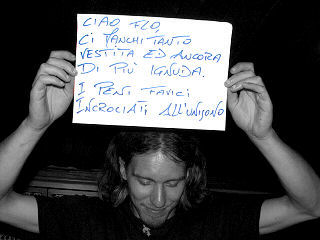 CIAO FLO,
CI MANCHI TANTO
VESTITA ED ANCORA
DI PIÙ IGNUDA.
I PENI FAVICI
INCROCIATI ALL'UNISONO